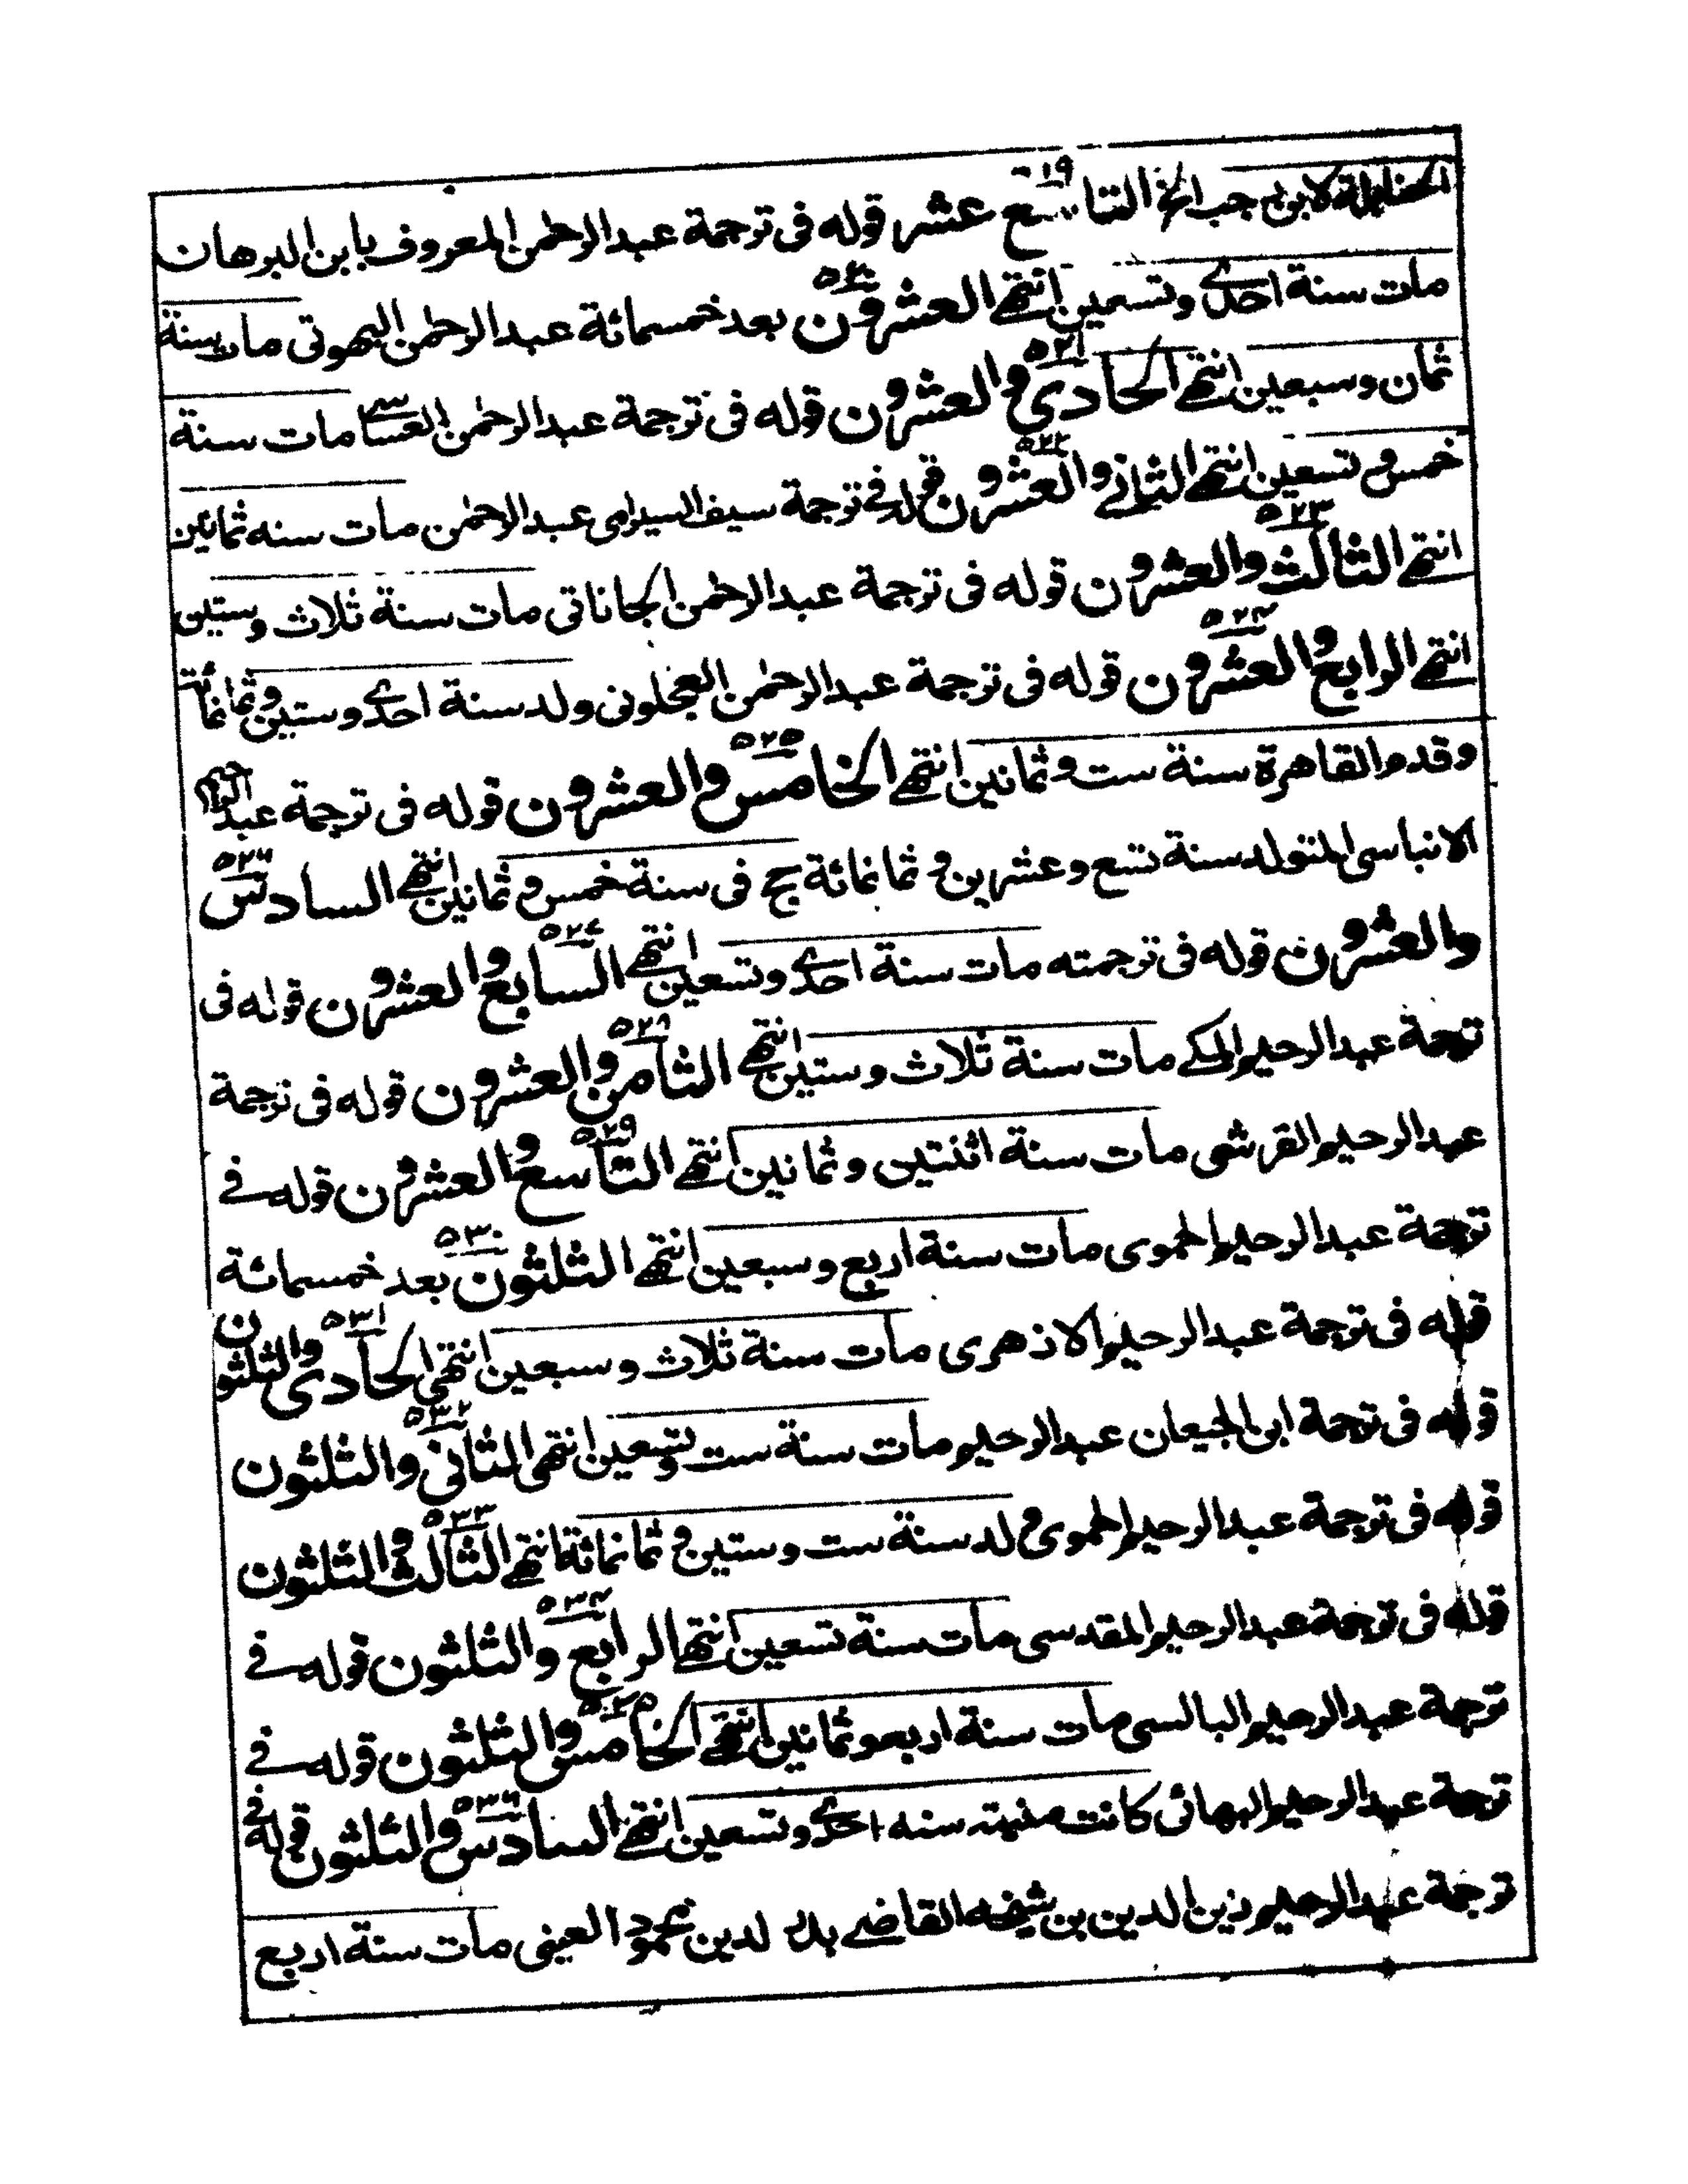 الحنابلة لابن رجب الخ التاسع عشر قوله فى ترجمة عبد الرحمن المعروف بابن البرهان
مات سنة احدى وتسعين انتهى العشرون بعد خمسمائة عبد الرحمن البهوتى مات سنة
ثمان وسبعين انتهى الحادى والعشرون قوله فى ترجمة عبد الرحمن مات سنة
خمس وتسعين انتهى الثانى والعشرون قوله فى ترجمة سيف السيرامى عبد الرحمن مات سنه ثمانين
انتهى الثالث والعشرون قوله فى ترجمة عبد الرحمن الجاناتى مات سنة ثلاث وستين
انتهى الرابع والعشرون قوله فى ترجمة عبد الرحمن العجلونى ولد سنة احدى وستين وثمانمائة
وقدم القاهرة سنة ست وثمانين انتهى الخامس والعشرون قوله فى ترجمة عبد الرحيم
الانباسى المتولد سنة تسع وعشرين وثمانمائة حج فى سنة خمس وثمانين انتهى السادس
والعشرون قوله فى ترجمته مات سنة احدى وتسعين انتهى السابع والعشرون قوله فى
ترجمة عبد الرحيم المكى مات سنة ثلاث وستين انتهى الثامن والعشرون قوله فى ترجمة
عبد الرحيم القرشى مات سنة اثنتين وثمانين انتهى التاسع والعشرون قوله فى
ترجمة عبد الرحيم الحموى مات سنة اربع وسبعين انتهى الثلثون بعد خمسمائة
قوله فى ترجمة عبد الرحيم الاذهرى مات سنة ثلاث وسبعين انتهى الحادى والثلثون
قوله فى ترجمة ابن الجيعان عبد الرحيم مات سنة ست وتسعين انتهى الثانى والثلثون
قوله فى ترجمة عبد الرحيم الحموى ولد سنة ست وستين وثمانمائة انتهى الثالث والثلثون
قوله فى ترجمة عبد الرحيم المقدسى مات سنة تسعين انتهى الرابع والثلثون قوله فى
ترجمة عبد الرحيم البالسى مات سنة اربع وثمانين انتهى الخامس والثلثون قوله فى
ترجمة عبد الرحيم البهائى كانت منيته سنه احدى وتسعين انتهى السادس والثلثون قوله فى
ترجمة عبد الرحيم زين الدين بن شيخه القاضى بدر لدين محمود العينى مات سنة اربع